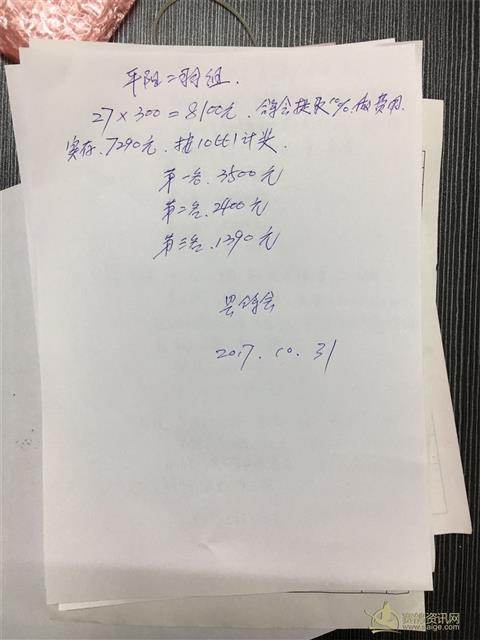 平阳二羽组.
27×300=8100元.鸽会提取10%做费用.
实存.7290元.按10比1计奖.
第一名.3500元
第二名.2400元
第三名.1390元
县鸽会
2017.10.31
赛鸽资讯网
www.saige.com